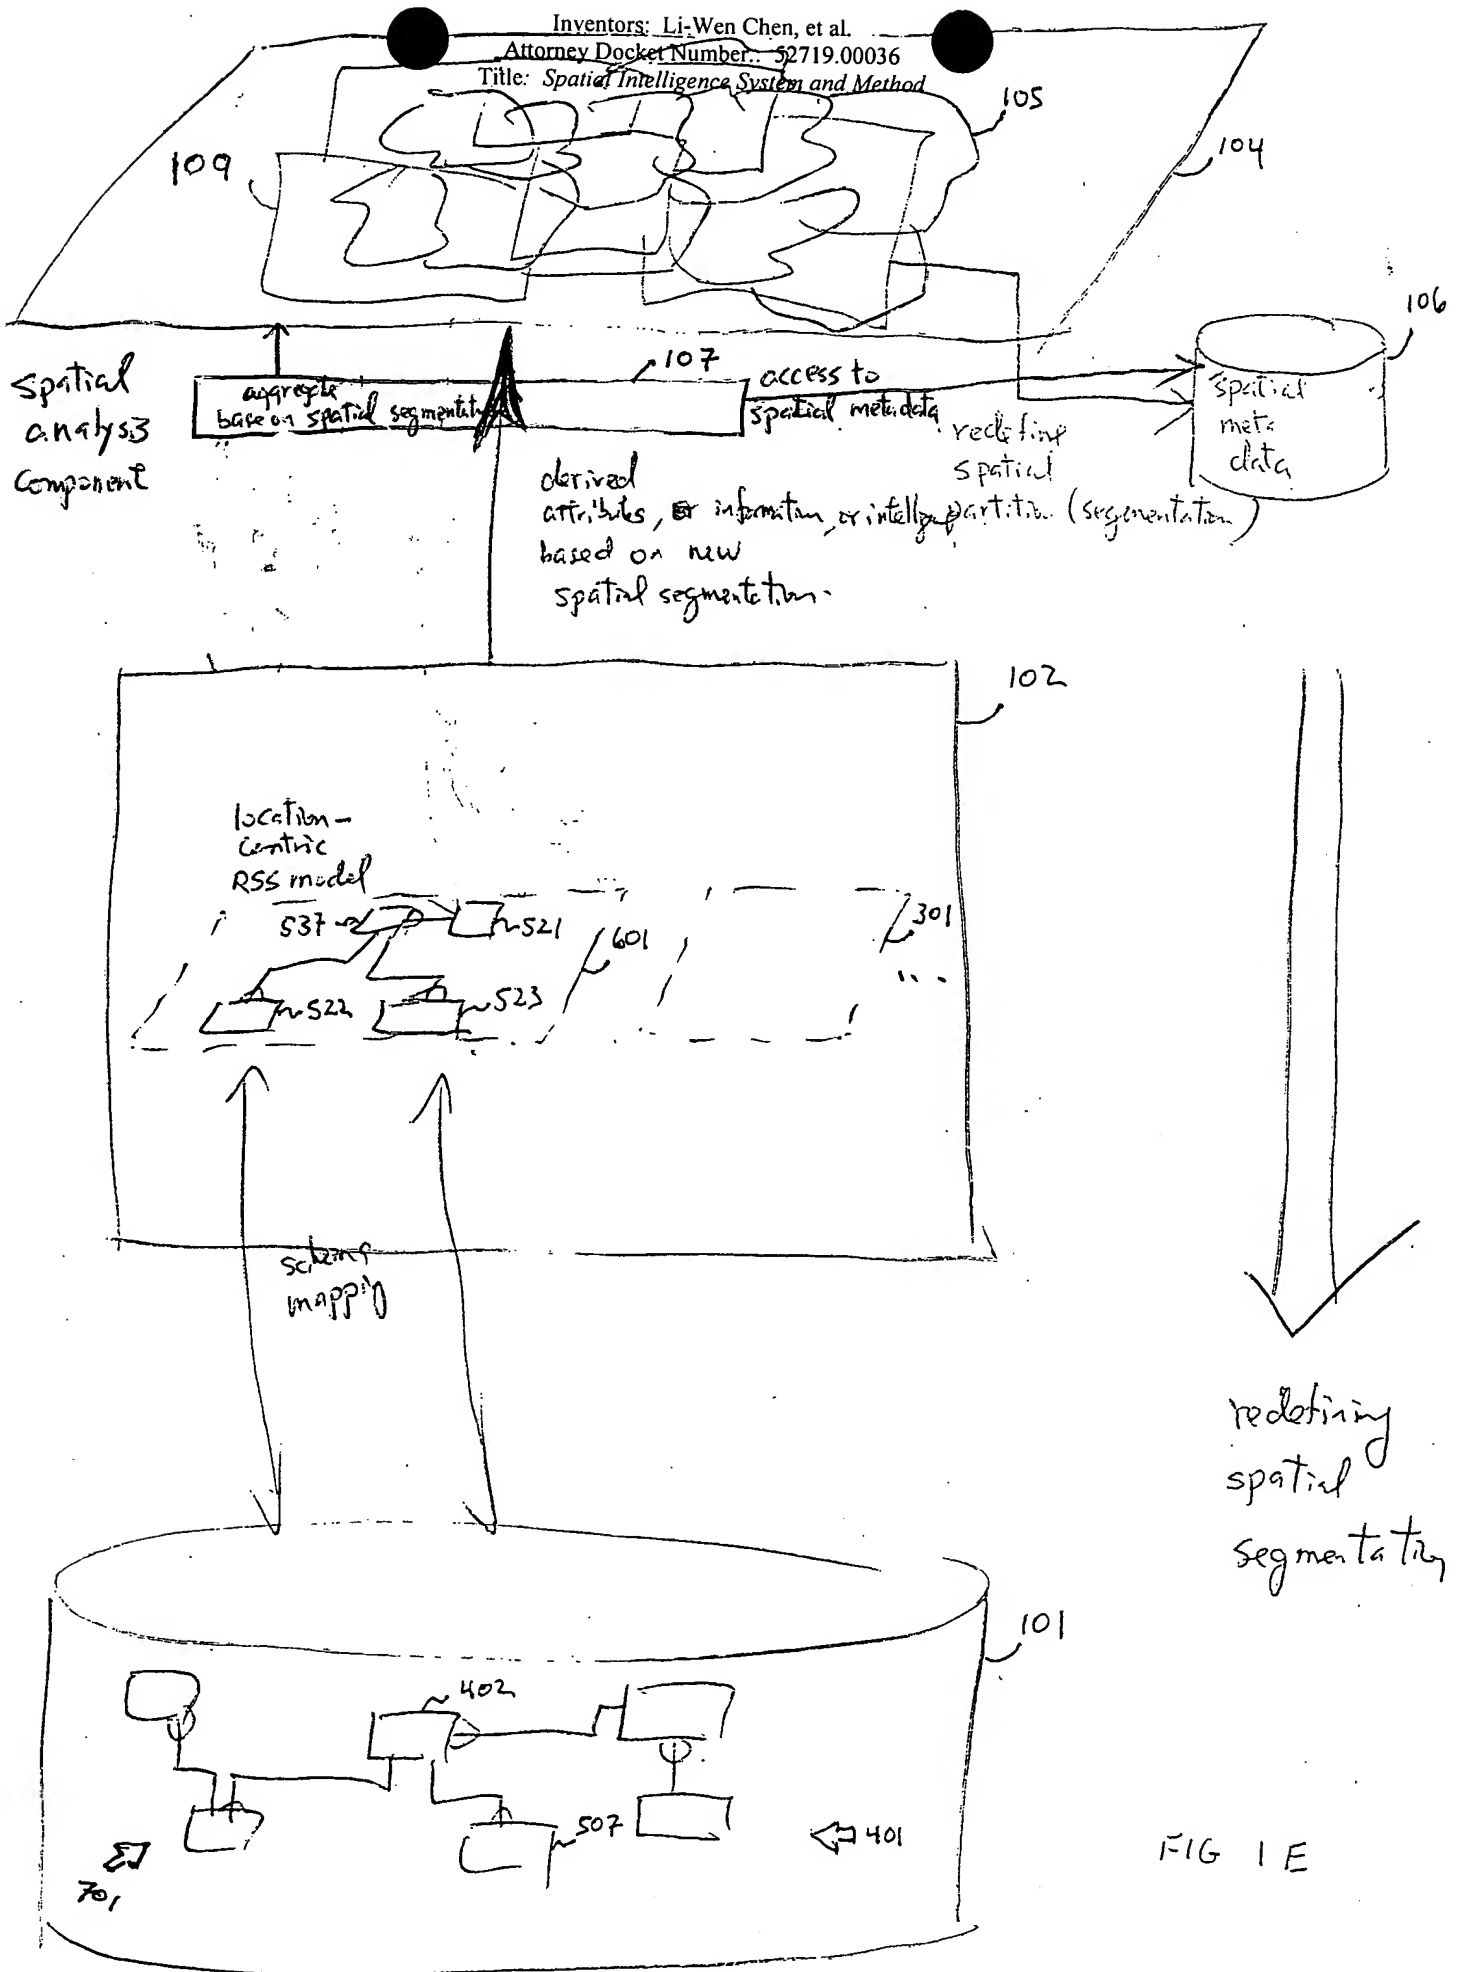 Inventors: Li-Wen Chen, et al.
Attorney Docket Number.: 52719.00036
Title: Spatial Intelligence System and Method
105
104
109
106
107
spatial
analysis
component
aggregate
base on spatial segmentation
access to
spatial metadata
spatial
meta
data
redefine
spatial
partition (segmentation)
derived
attributes, or information, or
based on new
spatial segmentation.
102
location-
centric
RSS model
537
521
601
301
...
522
523
schema
mapping
redefining
spatial
segmentation
101
402
507
401
701
FIG 1E